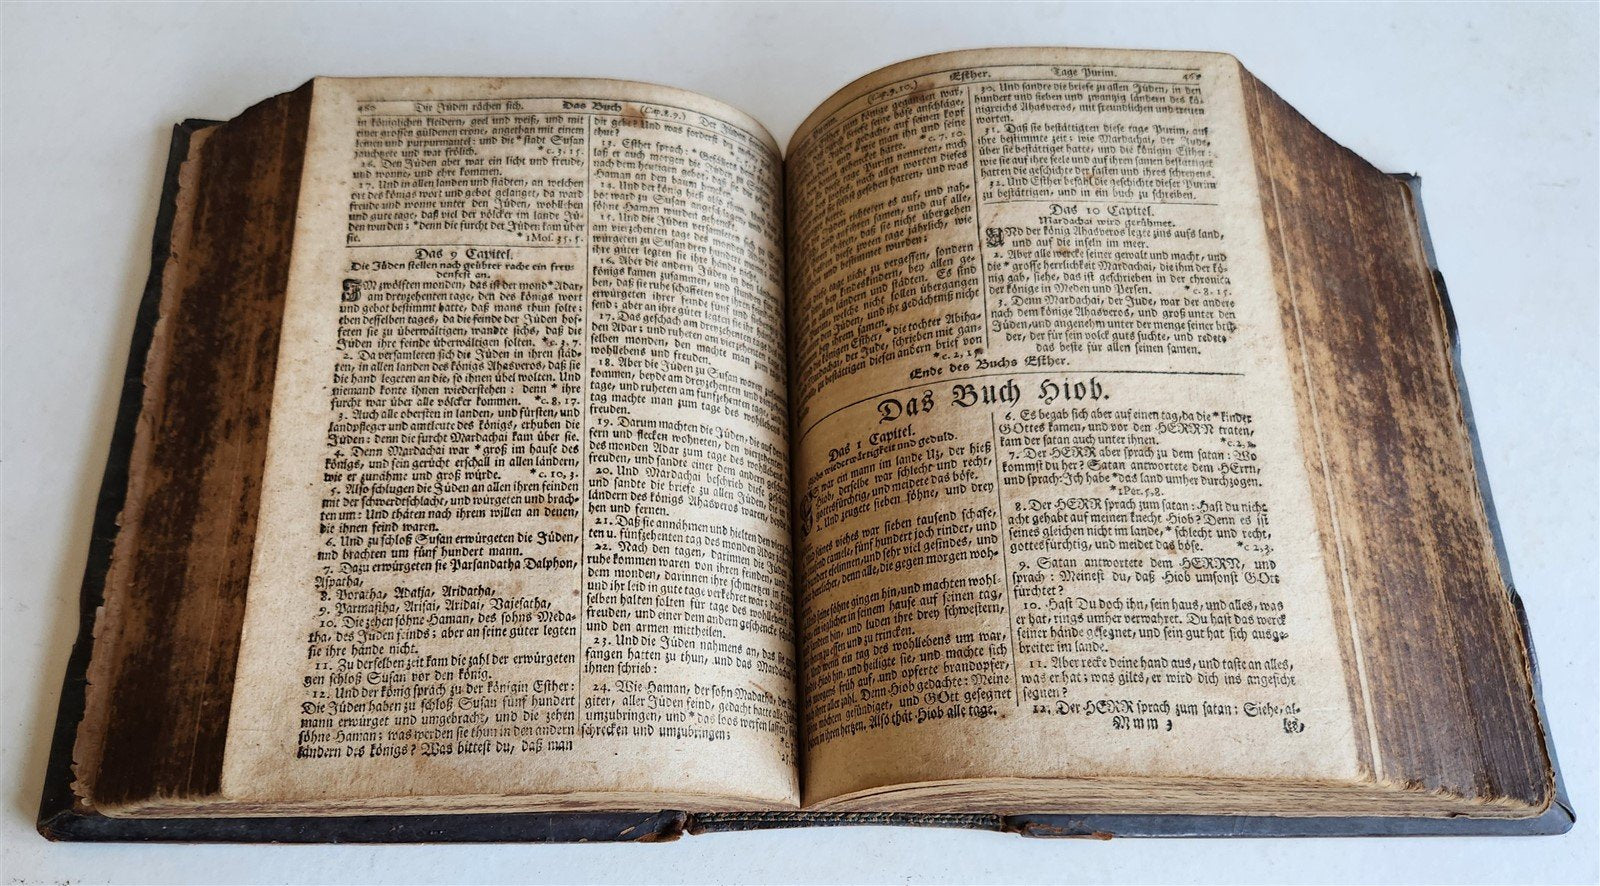 460 Die Jüden rächen sich. Das Buch (Cap.8.9.) Der Jüden
in königlichen kleidern, geel und weiß, und mit
einer grossen güldenen crone, angethan mit einem
leinen und purpurmantel: und die * stadt Susan
jauchzete und war frölich. * c. 3, 15.
16. Den Jüden aber war ein licht und freude,
und wonne, und ehre kommen.
17. Und in allen landen und städten, an welchen
ort des königs wort und gebot gelanget, da ward
freude und wonne unter den Jüden, wohlleben
und gute tage, daß viel der völcker im lande Jü-
den wurden; * denn die furcht der Jüden kam über
sie. * 1 Mos. 35, 5.
Das 9 Capitel.
Die Jüden stellen nach geübter rache ein freu-
denfest an.
IM zwölften monden, das ist der mond * Adar,
am dreyzehenten tage, den des königs wort
und gebot bestimmt hatte, daß mans thun solte;
eben desselben tages, da die feinde der Jüden hof-
feten sie zu überwältigen, wandte sichs, daß die
Jüden ihre feinde überwältigen solten. * c. 3, 7.
2. Da versamleten sich die Jüden in ihren städ-
ten, in allen landen des königs Ahasveros, daß sie
die hand legeten an die, so ihnen übel wolten. Und
niemand konte ihnen wiederstehen: denn * ihre
furcht war über alle völcker kommen. * c. 8, 17.
3. Auch alle obersten in landen, und fürsten, und
landpfleger und amtleute des königs, erhuben die
Jüden: denn die furcht Mardachai kam über sie.
4. Denn Mardachai war * groß im hause des
königs, und sein gerücht erschall in allen ländern,
wie er zunähme und groß würde. * c. 10, 3.
5. Also schlugen die Jüden an allen ihren feinden
mit der schwerdtschlacht, und würgeten und brach-
ten um: Und thäten nach ihrem willen an denen,
die ihnen feind waren.
6. Und zu schloß Susan erwürgeten die Jüden,
und brachten um fünf hundert mann.
7. Dazu erwürgeten sie Parsandatha Dalphon,
Aspatha,
8. Poratha, Adalja, Aridatha,
9. Parmastha, Arisai, Aridai, Vajesatha,
10. Die zehen söhne Haman, des sohns Meda-
tha, des Jüden feinds: aber an seine güter legten
sie ihre hände nicht.
11. Zu derselben zeit kam die zahl der erwürgeten
gen schloß Susan vor den könig.
12. Und der könig sprach zu der königin Esther:
Die Jüden haben zu schloß Susan fünf hundert
mann erwürget und umgebracht, und die zehen
söhne Haman; was werden sie thun in den andern
ländern des königs? Was bittest du, daß man
dir gebe? Und was forderst
thue?
13. Esther sprach:
laß er auch morgen die
nach dem heutigen gebot, daß
Haman an den baum
14. Und der könig
bot ward zu Susan angeschlagen,
söhne Haman wurden gehenckt.
15. Und die Jüden versamleten sich
am vierzehenten tage des monden
würgeten zu Susan drey hundert
ihre güter legten sie ihre hände
16. Aber die andern Jüden in den
königs kamen zusammen, und stunden
ben, daß sie ruhe schaffeten vor ihren
erwürgeten ihrer feinde fünf und
send; aber an ihre güter legten sie ihre
17. Das geschach am dreyzehenten tage
den Adar; und ruheten am vierzehenten
selben monden, den machte man zum
wohllebens und freuden.
18. Aber die Jüden zu Susan waren
kommen, beyde am dreyzehenten und vierzehenten
tage, und ruheten am funfzehenten tage,
tag machte man zum tage des wohllebens
freuden.
19. Darum machten die Jüden, die auf den
fern und flecken wohneten, den vierzehenten
des monden Adar zum tage des wohllebens
freuden, und sandte einer dem andern
20. Und Mardachai beschrieb diese
und sandte die briefe zu allen Jüden, die in
ländern des königs Ahasveros waren, beyde
hen und fernen.
21. Daß sie annähmen und hielten den vierzehen-
ten u. fünfzehenten tag des monden Adar
22. Nach den tagen, darinnen die Jüden
ruhe kommen waren von ihren feinden, und
dem monden, darinnen ihre schmerzen in
und ihr leid in gute tage verkehret war; daß sie
selben halten solten für tage des wohllebens
freuden, und einer dem andern geschencke
und den armen mittheilen.
23. Und die Jüden nahmens an, das sie
fangen hatten zu thun, und das Mardachai
ihnen schrieb:
24. Wie Haman, der sohn Madatha,
giter, aller Jüden feind, gedacht hatte alle
umzubringen, und * das loos werfen lassen,
schrecken und umzubringen;
25.
(Cap. 9. 10.) Esther. Tage Purim.
könige gegangen war,
briefe seine böse anschläge,
auf seinen kopf
wie man ihn und seine
hencke hätte. * c. 7, 10.
tage Purim nenneten, nach
nach allen worten dieses
gesehen hatten, und was
richteten es auf, und nah-
ihren samen, und auf alle,
daß sie nicht übergehen
diese zween tage jährlich, wie
und bestimmet wurden;
tage nicht zu vergessen, sondern
bey kindeskindern, bey allen ge-
allen ländern und städten. Es sind
welche nicht sollen übergangen
Jüden, und ihr gedächtniß nicht
ihrem samen.
königin Esther, * die tochter Abiha-
der Jude, schrieben mit gan-
zu bestättigen diesen andern brief von
* c. 2, 15.
30. Und sandte die briefe zu allen Jüden, in den
hundert und sieben und zwanzig ländern des kö-
nigreichs Ahasveros, mit freundlichen und treuen
worten.
31. Daß sie bestättigten diese tage Purim, auf
ihre bestimmte zeit: wie Mardachai, der Jude,
über sie bestättiget hatte, und die königin Esther:
wie sie auf ihre seele und auf ihren samen bestättiget
hatten die geschichte der fasten und ihres schreyens.
32. Und Esther befahl die geschichte dieser Purim
zu bestättigen, und in ein buch zu schreiben.
Das 10 Capitel.
Mardachai wird gerühmet.
UNd der könig Ahasveros legte zins aufs land,
und auf die inseln im meer.
2. Aber alle wercke seiner gewalt und macht, und
die * grosse herrlichkeit Mardachai, die ihm der kö-
nig gab, siehe, das ist geschrieben in der chronica
der könige in Meden und Persen. * c. 8, 15.
3. Denn Mardachai, der Jude, war der andere
nach dem könige Ahasveros, und groß unter den
Jüden, und angenehm unter der menge seiner brü-
der, der für sein volck guts suchte, und redete
das beste für allen seinen samen.
Ende des Buchs Esther.
Das Buch Hiob.
Das 1 Capitel.
Hiobs wiederwärtigkeit und geduld.
ES war ein mann im lande Uz, der hieß
Hiob, derselbe war schlecht und recht,
gottesfürchtig, und meidete das böse.
2. Und zeugete sieben söhne, und drey
seines viehes war sieben tausend schafe,
tausend camele, fünf hundert joch rinder, und
hundert eselinnen, und sehr viel gesindes, und
herrlicher, denn alle, die gegen morgen woh-
seine söhne gingen hin, und machten wohl-
ein ieglicher in seinem hause auf seinen tag,
hin, und luden ihre drey schwestern,
zu essen und zu trincken.
wenn ein tag des wohllebens um war,
Hiob hin, und heiligte sie, und machte sich
morgens früh auf, und opferte brandopfer,
ihrer aller zahl. Denn Hiob gedachte: Meine
möchten gesündiget, und GOtt gesegnet
haben in ihrem herzen. Also that Hiob alle tage.
6. Es begab sich aber auf einen tag, da die * kinder
GOttes kamen, und vor den HERRN traten,
kam der satan auch unter ihnen. * c. 2, 1.
7. Der HERR aber sprach zu dem satan: Wo
kommst du her? Satan antwortete dem HErrn,
und sprach: Ich habe * das land umher durchzogen.
* 1 Pet. 5, 8.
8. Der HERR sprach zum satan: Hast du nicht
acht gehabt auf meinen knecht Hiob? Denn es ist
seines gleichen nicht im lande, * schlecht und recht,
gottesfürchtig, und meidet das böse. * c 2, 3.
9. Satan antwortete dem HERRN, und
sprach: Meinest du, daß Hiob umsonst GOtt
fürchtet?
10. Hast Du doch ihn, sein haus, und alles, was
er hat, rings umher verwahret. Du hast das werck
seiner hände gesegnet, und sein gut hat sich ausge-
breitet im lande.
11. Aber recke deine hand aus, und taste an alles,
was er hat; was gilts, er wird dich ins angesicht
segnen?
12. Der HERR sprach zum satan: Siehe, al-
Mmm 3 les,